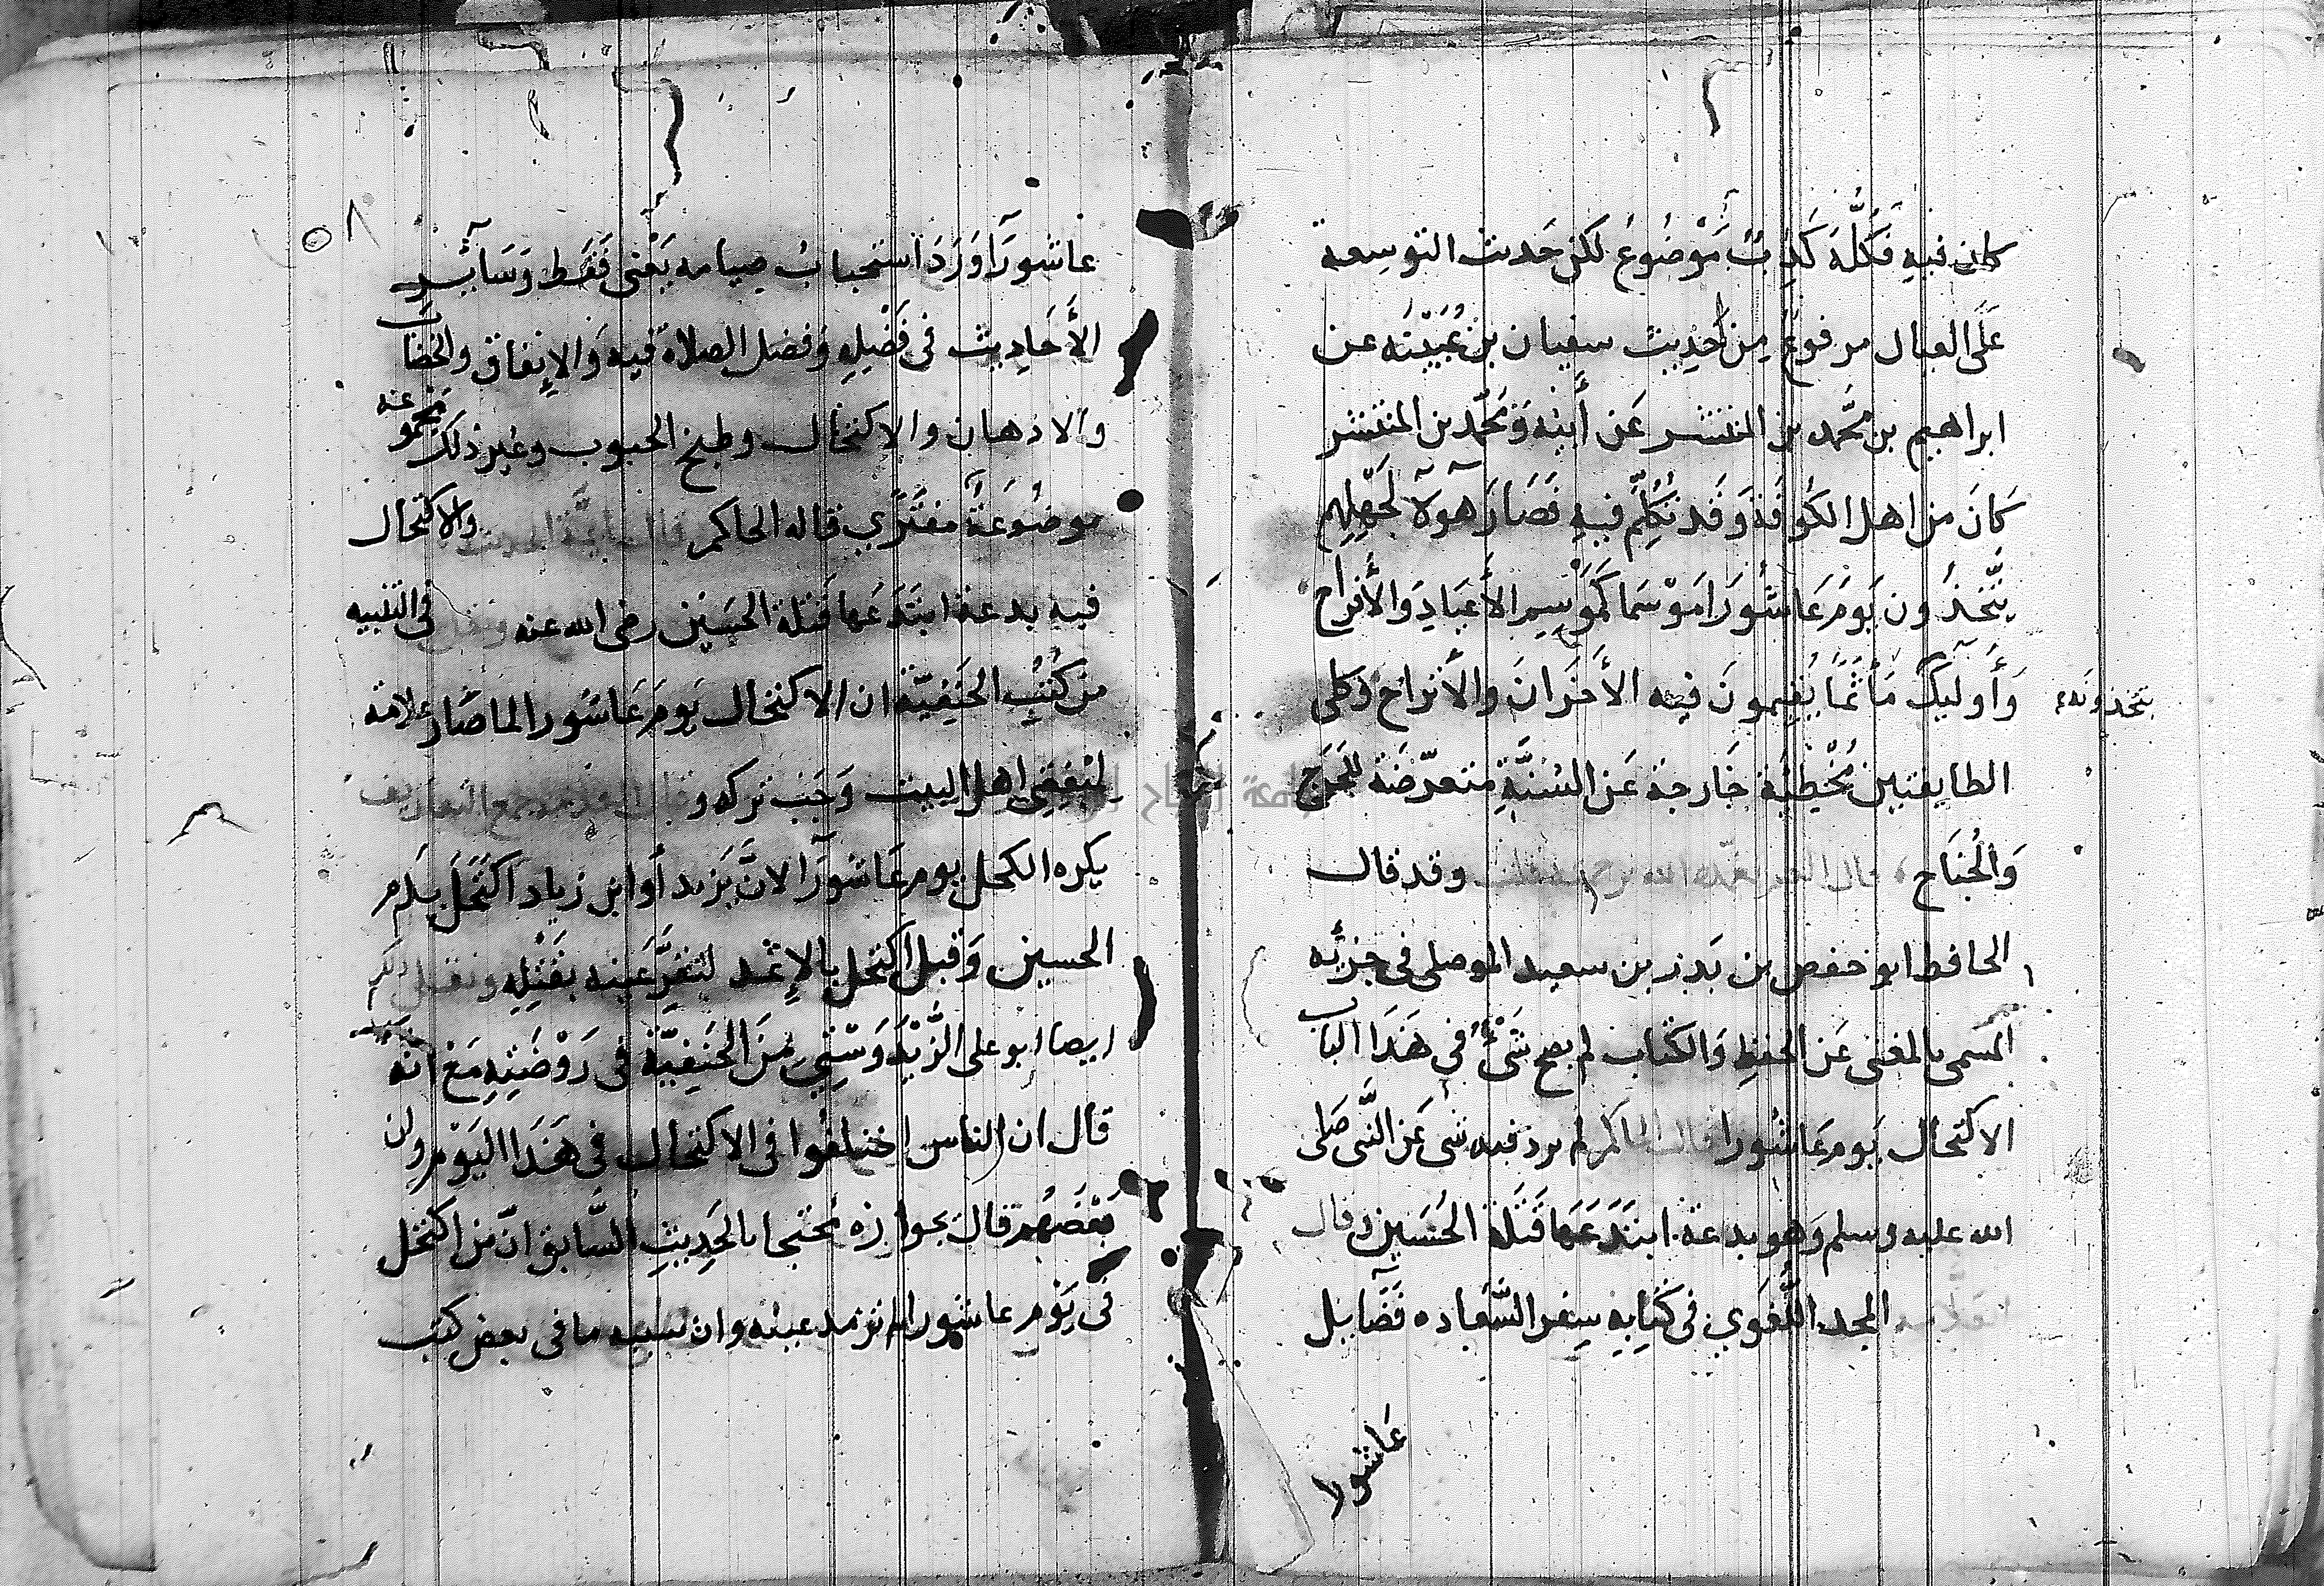 كان فيه فكله كذب موضوع لكن حديث التوسعة
على العيال مرفوع من حديث سفيان بن عيينه عن
ابراهيم بن محمد بن المنتشر عن أبيه ومحمد بن المنتشر
كان من اهل الكوفة وقد تكلم فيه فصار هولآ لجهلهم
يتخذون يوم عاشورا موسما كموسم الأعياد والأفراح
وأوليك مأتما يقيمون فيه الأحزان والأتراح وكلي
يتخذونه
الطايفتين مخطية خارجة عن السنة متعرضة للحرج
والجناح وقد قال
الحافظ ابو حفص بن بدر بن سعيد الموصلي في جزئه
المسمى بالمغني عن الحفظ والكتاب لم يصح شئ في هذا الباب
الاكتحال يوم عاشورا قال الحاكم لم يرد فيه شي عن النبي صلى
الله عليه وسلم وهو بدعة ابتدعها قتلة الحسين وقال
المجد اللغوي في كتابه سفر السعاده فضايل
عاشورا
١٥٨
عاشورآ ورد استحباب صيامه يعني فقط وسآئر
الأحاديث في فضله وفضل الصلاة فيه والإنفاق والخضاب
والادهان والاكتحال وطبخ الحبوب وغير ذلك
موضوعة مفتري قاله الحاكم والاكتحال
فيه بدعة ابتدعها قتلة الحسين رضي الله عنه في التنبيه
من كتب الحنفية ان الاكتحال يوم عاشورا لما صار علامة
لبغض اهل البيت وجب تركه و
يكره الكحل يوم عاشورآ لان يزيد أو ابن زياد اكتحل بدم
الحسين وقيل اكتحل بالإثمد لتقر عينه بقتله ونقل ذكر
ايضا ابو على الزندوستي من الحنفية في روضته مع انه
قال ان الناس اختلفوا في الاكتحال في هذا اليوم وان
بعضهم قال بجوازه محتجا بالحديث السابق ان من اكتحل
في يوم عاشورا لم ترمد عينه وان سببه ما في بعض كتب